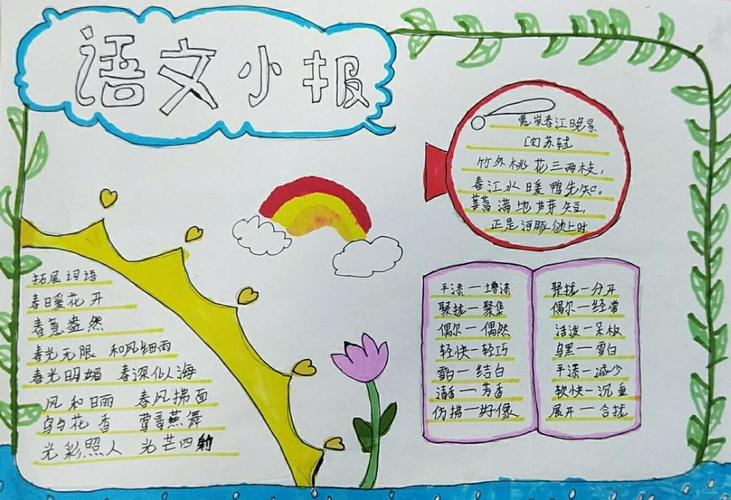 语文小报
拓展词语
春暖花开
春意盎然
春光无限 和风细雨
春光明媚 春深似海
风和日丽 春风拂面
鸟语花香 莺歌燕舞
光彩照人 光芒四射
惠崇春江晚景
[宋]苏轼
竹外桃花三两枝,
春江水暖鸭先知。
蒌蒿满地芦芽短,
正是河豚欲上时
平添一增添
聚拢一聚集
偶尔一偶然
轻快一轻巧
雪白一结白
清香一芳香
仿佛一好像
聚拢一分开
偶尔一经常
活泼一呆板
乌黑一雪白
平添一减少
轻快一沉重
展开一合拢